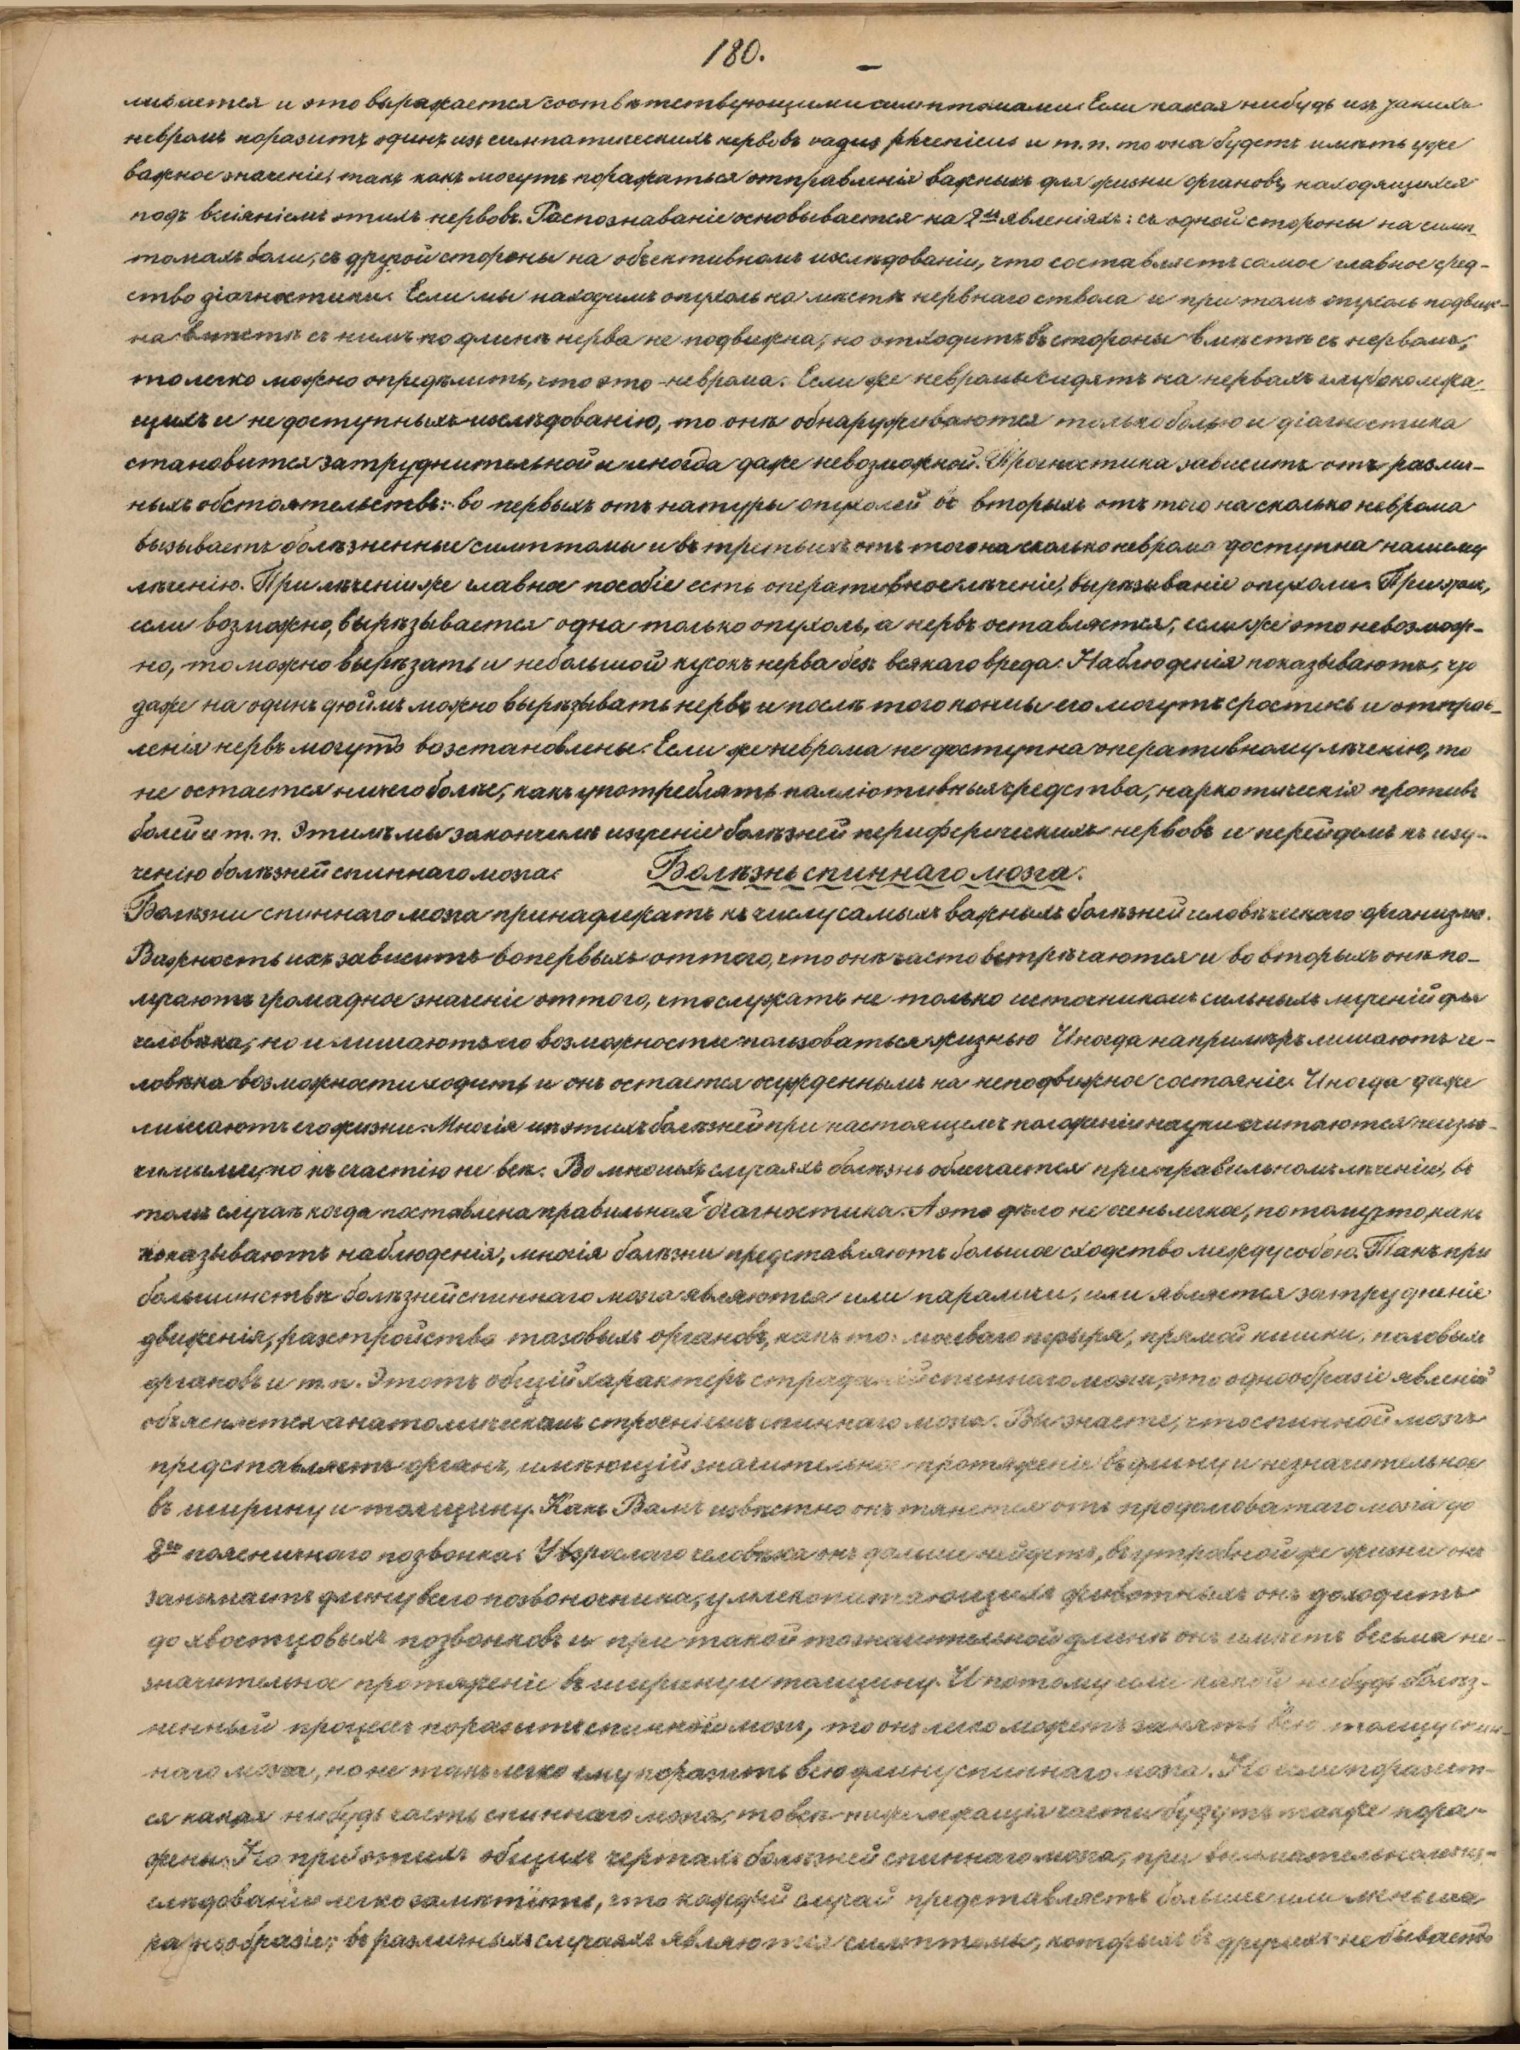 180.
ливается и это выражается соответствующими симптомами. Если какая нибудь изъ такихъ
невромъ поразитъ одинъ изъ симпатическихъ нервовъ vagus phrenicus и т. п. то она будетъ имѣть уже
важное значеніе, такъ какъ могутъ поражаться отправленія важныхъ для жизни органовъ, находящихся
подъ вліяніемъ этихъ нервовъ. Распознаваніе основывается на 2хъ явленіяхъ: съ одной стороны на симп
томахъ боли, съ другой стороны на объективномъ изслѣдованіи, что составляетъ самое главное сред-
ство діагностики. Если мы находимъ опухоль на мѣстѣ нервнаго ствола и при томъ опухоль подвиж-
на вмѣстѣ съ нимъ по длинѣ нерва не подвижна, но отходитъ въ стороны вмѣстѣ съ нервомъ,
то легко можно опредѣлить, что это неврома. Если же невромы сидятъ на нервахъ глубоколежа-
щихъ и не доступныхъ изслѣдованію, то онѣ обнаруживаются только болью и діагностика
становится затруднительной и иногда даже невозможной. Прогностика зависитъ отъ различ-
ныхъ обстоятельствъ: во первыхъ отъ натуры опухолей во вторыхъ отъ того на сколько неврома
вызываетъ болѣзненные симптомы и въ третьихъ отъ того на сколько неврома доступна нашему
лѣченію. При лѣченіи же главное пособіе есть оперативное лѣченіе, вырѣзываніе опухоли. При этомъ,
если возможно, вырѣзывается одна только опухоль, а нервъ оставляется, если же это невозмож-
но, то можно вырѣзать и небольшой кусокъ нерва безъ всякаго вреда. Наблюденія показываютъ, что
даже на одинъ дюймъ можно вырѣзывать нервъ и послѣ того концы его могутъ сростись и отправ-
ленія нервъ могутъ возстановлены. Если же неврома не доступна оперативному лѣченію, то
не остается ничего болѣе, какъ употреблять палліотивныя средства, наркотическія противъ
болей и т. п. Этимъ мы закончимъ изученіе болѣзней периферическихъ нервовъ и перейдемъ къ изу-
ченію болѣзней спиннаго мозга. Болѣзнь спиннаго мозга.
Болѣзни спиннаго мозга принадлежатъ къ числу самыхъ важныхъ болѣзней человѣческаго организма.
Важность ихъ зависитъ вопервыхъ оттого, что онѣ часто встрѣчаются и во вторыхъ онѣ по-
лучаютъ громадное значеніе оттого, что служатъ не только источникомъ сильныхъ мученій для
человѣка, но и лишаютъ его возможности пользоваться жизнью Иногда напримѣръ лишаютъ че-
ловѣка возможности ходить и онъ остается осужденнымъ на неподвижное состояніе. Иногда даже
лишаютъ его жизни. Многія изъ этихъ болѣзней при настоящемъ положеніи науки считаются неизлѣ-
чимыми, но къ счастію не всѣ. Во многихъ случаяхъ болѣзнь облегчается при правильномъ лѣченіи, въ
томъ случаѣ когда поставлена правильная діагностика. А это дѣло не очень легкое, потому что, какъ
показываютъ наблюденія, многія болѣзни представляютъ большое сходство между собою. Такъ при
большинствѣ болѣзней спиннаго мозга являются или параличи, или является затрудненіе
движенія, разстройство тазовыхъ органовъ, какъ то: мочеваго пузыря, прямой кишки, половыхъ
органовъ и т. п. Этотъ общій характеръ страданій спиннаго мозга, это однообразіе явленій
объясняется анатомическимъ строеніемъ спиннаго мозга. Вы знаете, что спинной мозгъ
представляетъ органъ, имѣющій значительное протяженіе въ длину и незначительное
въ ширину и толщину. Какъ Вамъ извѣстно онъ тянется отъ продолговатаго мозга до
2го поясничнаго позвонка. У взрослаго человѣка онъ дальше нейдетъ, въ утробной же жизни онъ
занимаетъ длину всего позвоночника, у млекопитающихъ животныхъ онъ доходитъ
до хвостцовыхъ позвонковъ и при такой то значительной длинѣ онъ имѣетъ весьма не-
значительное протяженіе въ ширину и толщину. И потому если какой нибудь болѣз-
ненный процессъ поразитъ спинной мозгъ, то онъ легко можетъ занять всю толщу спин-
наго мозга, но не такъ легко ему поразить всю длину спиннаго мозга. Но если поразит-
ся какая нибудь часть спиннаго мозга, то всѣ нижележащія части будутъ также пора-
жены. Но при этихъ общихъ чертахъ болѣзней спиннаго мозга, при внимательномъ из-
слѣдованіи легко замѣтить, что каждый случай представляетъ большее или меньшее
разнообразіе; въ различныхъ случаяхъ являются симптомы, которыхъ въ другихъ не бываетъ